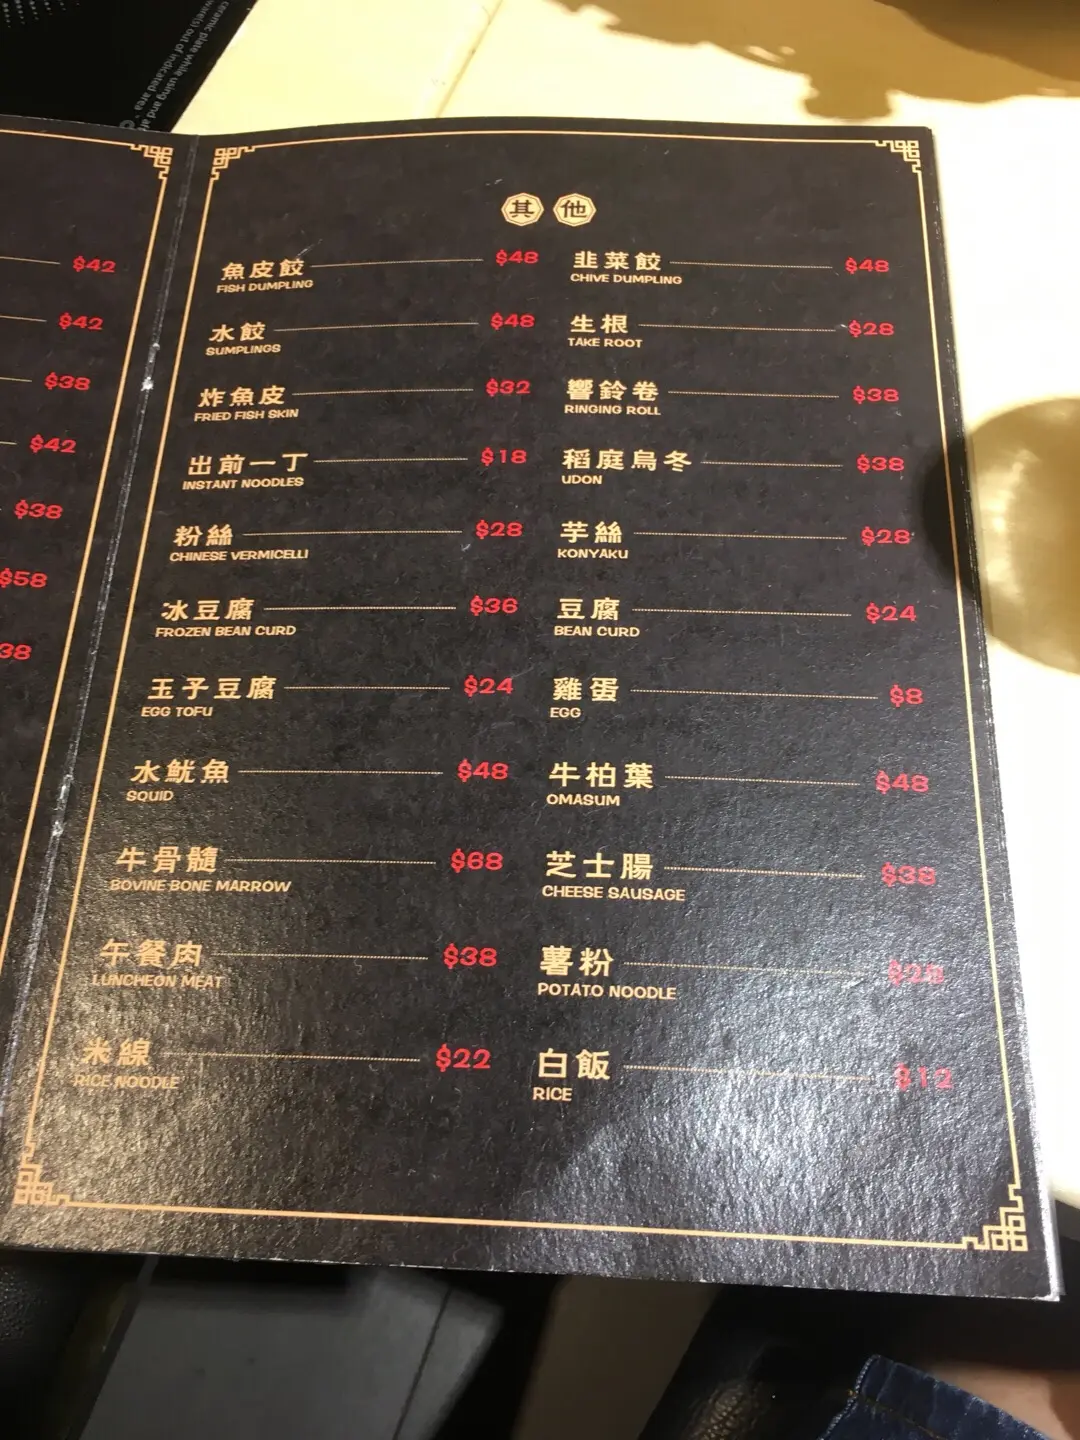 ceramic plate while using and af
ware(s) out of indicated area
$42
$42
$38
$42
$38
$58
38
其他
魚皮餃 $48
FISH DUMPLING
水餃 $48
SUMPLINGS
炸魚皮 $32
FRIED FISH SKIN
出前一丁 $18
INSTANT NOODLES
粉絲 $28
CHINESE VERMICELLI
冰豆腐 $36
FROZEN BEAN CURD
玉子豆腐 $24
EGG TOFU
水魷魚 $48
SQUID
牛骨髓 $68
BOVINE BONE MARROW
午餐肉 $38
LUNCHEON MEAT
米線 $22
RICE NOODLE
韭菜餃 $48
CHIVE DUMPLING
生根 $28
TAKE ROOT
響鈴卷 $38
RINGING ROLL
稻庭烏冬 $38
UDON
芋絲 $28
KONYAKU
豆腐 $24
BEAN CURD
雞蛋 $8
EGG
牛柏葉 $48
OMASUM
芝士腸 $38
CHEESE SAUSAGE
薯粉
POTATO NOODLE
白飯 $12
RICE